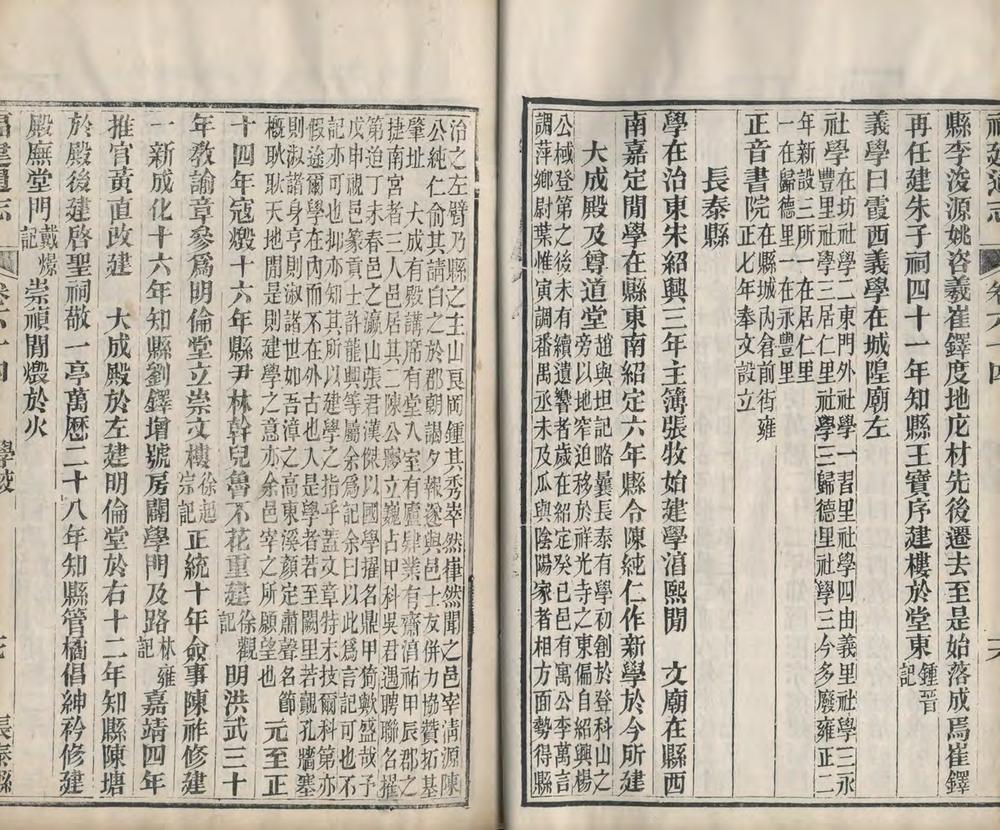 福建通志 卷六十四 六
縣李浚源姚咨羲崔鐸度地庀材先後遷去至是始落成焉崔鐸
再任建朱子祠四十一年知縣王寶序建樓於堂東鍾晉記
義學曰霞西義學在城隍廟左
社學在坊社學二東門外社學一習里社學四由義里社學三永
豐里社學三居仁里社學三歸德里社學三今多廢雍正二
年新設三所一在居仁里
一在歸德里一在永豐里
正音書院在縣城內倉前街雍
正七年奉文設立
長泰縣
學在治東宋紹興三年主簿張牧始建學淳熙閒 文廟在縣西
南嘉定閒學在縣東南紹定六年縣令陳純仁作新學於今所建
大成殿及尊道堂趙與坦記略曩長泰有學初創於登科山之
旁以地窄迫移於祥光寺之東偏自紹興楊
公棫登第之後未有續遺響者歲在紹定癸巳邑有寓公李萬言
調萍鄉尉葉惟寅調番禺丞未及瓜與陰陽家者相方面勢得縣
治之左臂乃縣之主山良岡鍾其秀崒然嵂然聞之邑宰淸源陳
公純仁俞其請白之於郡朝謁夕報遂與邑士友併力協贊拓基
肇址 大成有殿講席有堂入室有廬肄業有齋淳祐甲辰郡之
捷南宮者三人邑居其二陳公廟立巍占甲科吳君遇聘聯名擢
第迨丁未春邑之瀛山張君漢傑以國學擢名鼎甲猗歟盛哉予
戊申視邑篆貢士許龍興等屬余爲記余曰以此爲言記可也不
記亦可也抑亦知其所以建學之指乎蓋文章特末技爾科第亦
假途爾學在內而不在外古也人是學者若至闕里若覿孔牆塞
則淑諸身亨則淑諸世如吾漳之高東溪顏定肅聲名節
槪耿耿天地閒是則建學之意亦余邑宰之所願望也 元至正
十四年寇燬十六年縣尹林幹兒魯不花重建徐觀記 明洪武三十
年敎諭章參爲明倫堂立崇文樓徐起宗記正統十年僉事陳祚修建
一新成化十六年知縣劉鐸增號房闢學門及路林雍記嘉靖四年
推官黃直改建 大成殿於左建明倫堂於右十二年知縣陳塘
於殿後建啓聖祠敬一亭萬歷二十八年知縣管橘倡紳衿修建
殿廡堂門戴燝記崇禎閒燬於火
福建通志 卷六十四 學校 七 長泰縣